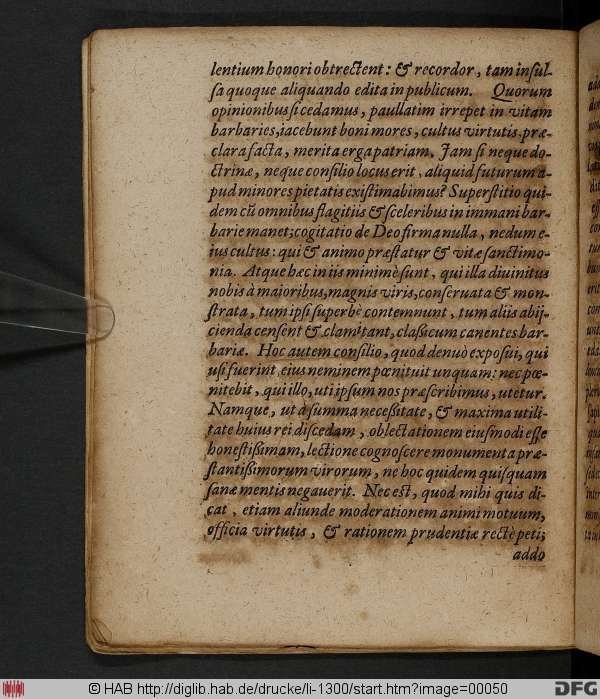 lentium honori obtrectent: & recordor, tam insul-
sa quoque aliquando edita in publicum. Quorum
opinionibus si cedamus, paullatim irrepet in vitam
barbaries, iacebunt boni mores, cultus virtutis præ-
clara facta, merita erga patriam. Jam si neque do-
ctrinæ, neque consilio locus erit, aliquid futurum a-
pud minores pietatis existimabimus? Superstitio qui-
dem cū omnibus flagitiis & sceleribus in immani bar-
barie manet; cogitatio de Deo firma nulla, nedum e-
ius cultus: qui & animo præstatur & vitæ sanctimo-
nia. Atque hæc in iis minimè sunt, qui illa diuinitus
nobis à maioribus, magnis viris, conseruata & mon-
strata, tum ipsi superbè contemnunt, tum aliis abij-
cienda censent & clamitant, classicum canentes bar-
bariæ. Hoc autem consilio, quod denuò exposui, qui
usi fuerint, eius neminem pœnituit unquam: nec pœ-
nitebit, qui illo, uti ipsum nos præscribimus, utetur.
Namque, ut à summa necessitate, & maxima utili-
tate huius rei discedam, oblectationem eiusmodi esse
honestissimam, lectione cognoscere monumenta præ-
stantissimorum virorum, ne hoc quidem quisquam
sanæ mentis negauerit. Nec est, quod mihi quis di-
cat, etiam aliunde moderationem animi motuum,
officia virtutis, & rationem prudentiæ rectè peti;
addo
© HAB http://diglib.hab.de/drucke/li-1300/start.htm?image=00050
DFG